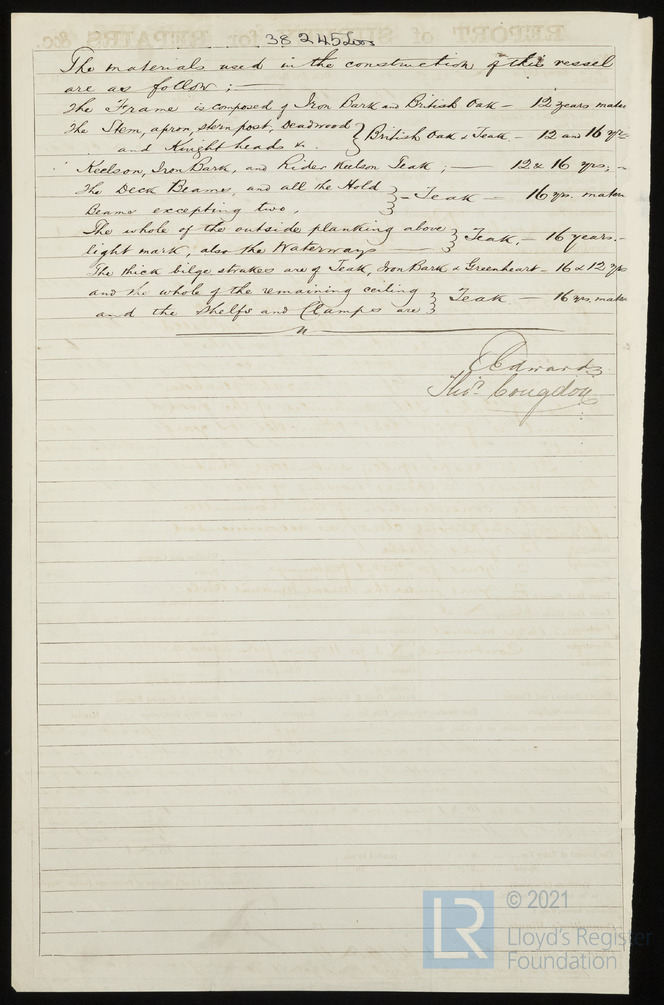 38245 Lon
The materials used in the construction of this vessel
are as follow ; —
The Frame is composed of Iron Bark and British Oak — 12 years mater
The Stem, apron, stern post, Deadwood
and Knight heads &c. } British Oak & Teak — 12 and 16 yrs
Keelson, Iron Bark, and Rider Keelson Teak ; — 12 & 16 yrs ; —
The Deck Beams, and all the Hold
Beams excepting two, } — Teak — 16 yrs. mater
The whole of the outside planking above
light mark, also the Waterways — } Teak, — 16 years. —
The thick bilge strakes are of Teak, Iron Bark & Greenheart — 16 & 12 yrs
and the whole of the remaining ceiling
and the Shelfs and Clamps are } Teak — 16 yrs. mater
Edwards
Thos. Congdon
LR © 2021
Lloyd's Register
Foundation